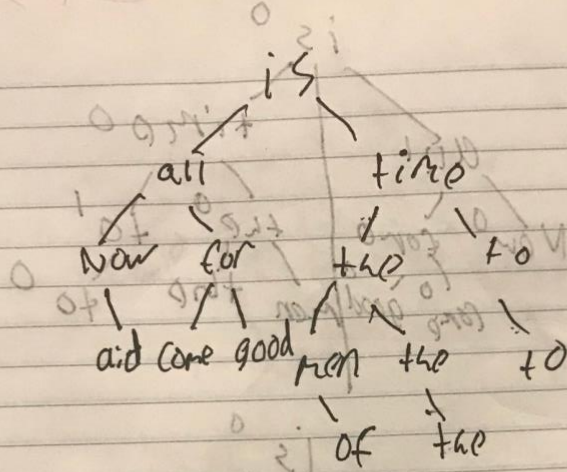 is
all time
Now for the to
aid come good men the to
of the